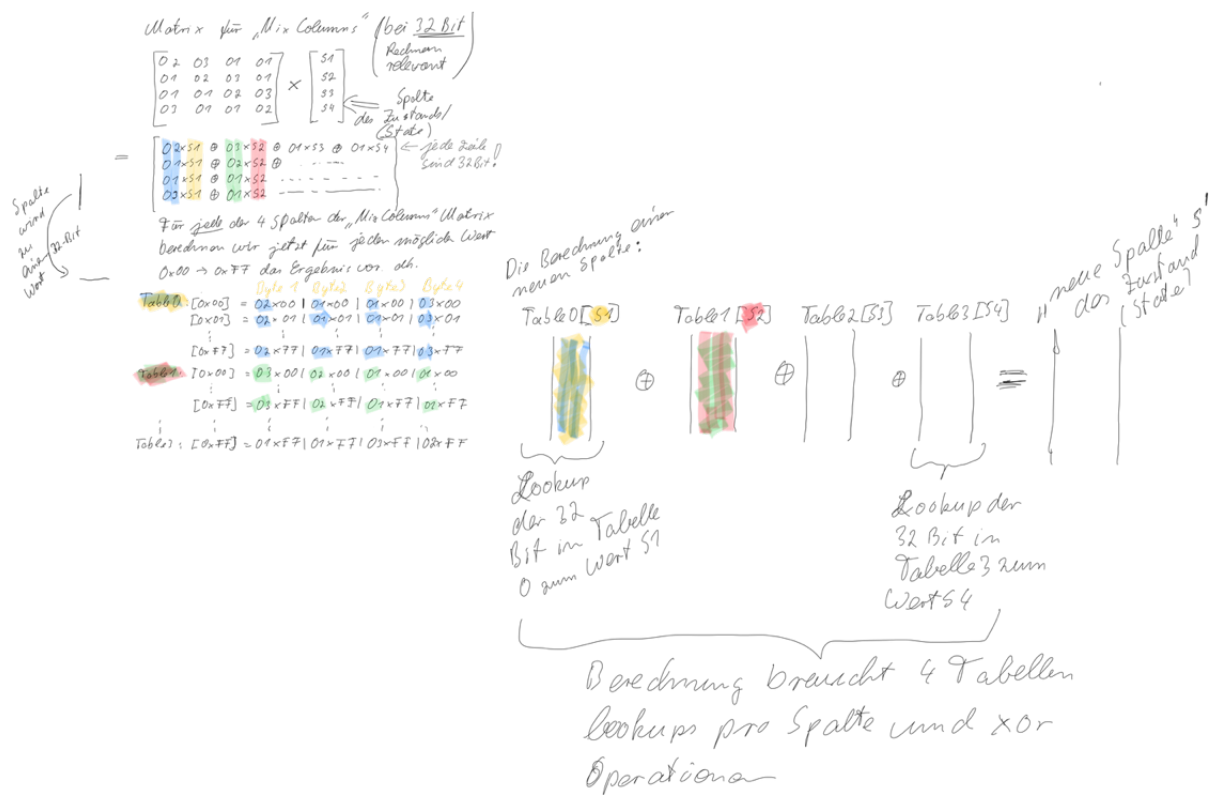 Matrix für „Mix Columns" (bei 32 Bit
Rechnern
relevant)
02 03 01 01
01 02 03 01
01 01 02 03
03 01 01 02
×
S1
S2
S3
S4
Spalte
des Zustands/
(State)
= 02×S1 ⊕ 03×S2 ⊕ 01×S3 ⊕ 01×S4 ← jede Zeile
01×S1 ⊕ 02×S2 ⊕ ----- sind 32Bit!
01×S1 ⊕ 01×S2 -----
03×S1 ⊕ 01×S2 -----
Spalte
wird
zu
einem 32-Bit
Wort
Für jede der 4 Spalten der „Mix Columns" Matrix
berechnen wir jetzt für jeden möglichen Wert
0x00 → 0xFF das Ergebnis vor. dh.
Byte 1 Byte2 Byte3 Byte4
Table0: [0x00] = 02×00 | 01×00 | 01×00 | 03×00
[0x01] = 02×01 | 01×01 | 01×01 | 03×01
[0xFF] = 02×FF | 01×FF | 01×FF | 03×FF
Table1: [0x00] = 03×00 | 02×00 | 01×00 | 01×00
[0xFF] = 03×FF | 02×FF | 01×FF | 01×FF
Table3: [0xFF] = 01×FF | 01×FF | 03×FF | 02×FF
Die Berechnung einer
neuen Spalte:
Table0[S1] Table1[S2] Table2[S3] Table3[S4]
⊕ ⊕ ⊕ =
„neue Spalte" S'
des Zustand
(State)
Lookup
der 32
Bit in Tabelle
0 zum Wert S1
Lookup der
32 Bit in
Tabelle 3 zum
Wert S4
Berechnung braucht 4 Tabellen
lookups pro Spalte und xor
Operationen